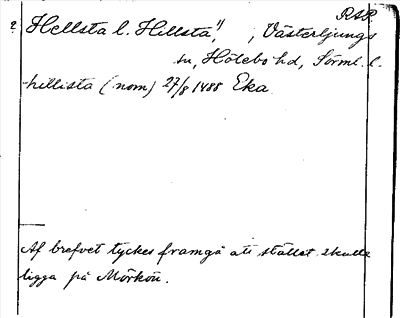 RAP
? Hellsta l. Hillsta", , Västerljungs
sn, Hölebo hd, Sörml. l.
hillista (nom) 27/8 1488 Eka
Af brefvet tyckes framgå att stället skulle
ligga på Mörkön.